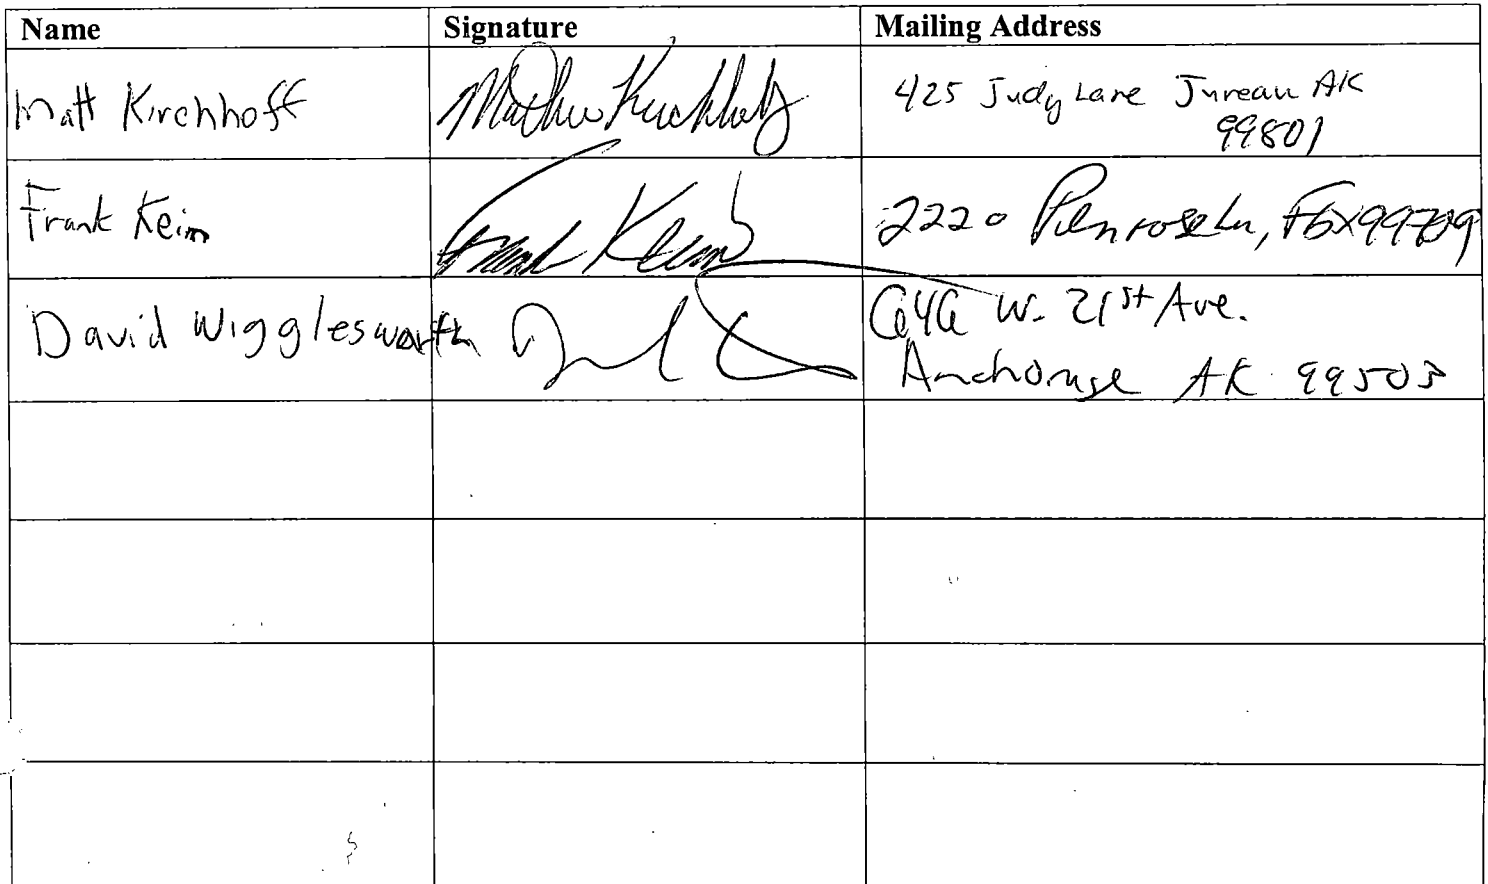 Name Signature Mailing Address
Matt Kirchhoff Matthew Kirchhoff 425 Judy Lane Juneau AK
99801
Frank Keim Frank Keim 2220 Penrose Ln, Fbx 99709
David Wigglesworth W. 21st Ave.
Anchorage AK 99503